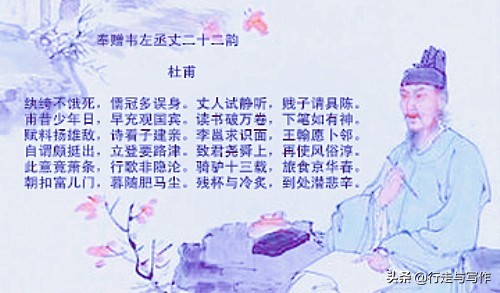 奉赠韦左丞丈二十二韵
杜甫
纨绔不饿死，儒冠多误身。丈人试静听，贱子请具陈。
甫昔少年日，早充观国宾。读书破万卷，下笔如有神。
赋料扬雄敌，诗看子建亲。李邕求识面，王翰愿卜邻。
自谓颇挺出，立登要路津。致君尧舜上，再使风俗淳。
此意竟萧条，行歌非隐沦。骑驴十三载，旅食京华春。
朝扣富儿门，暮随胆马尘。残杯与冷炙，到处潜悲辛。
头条 @行走与写作